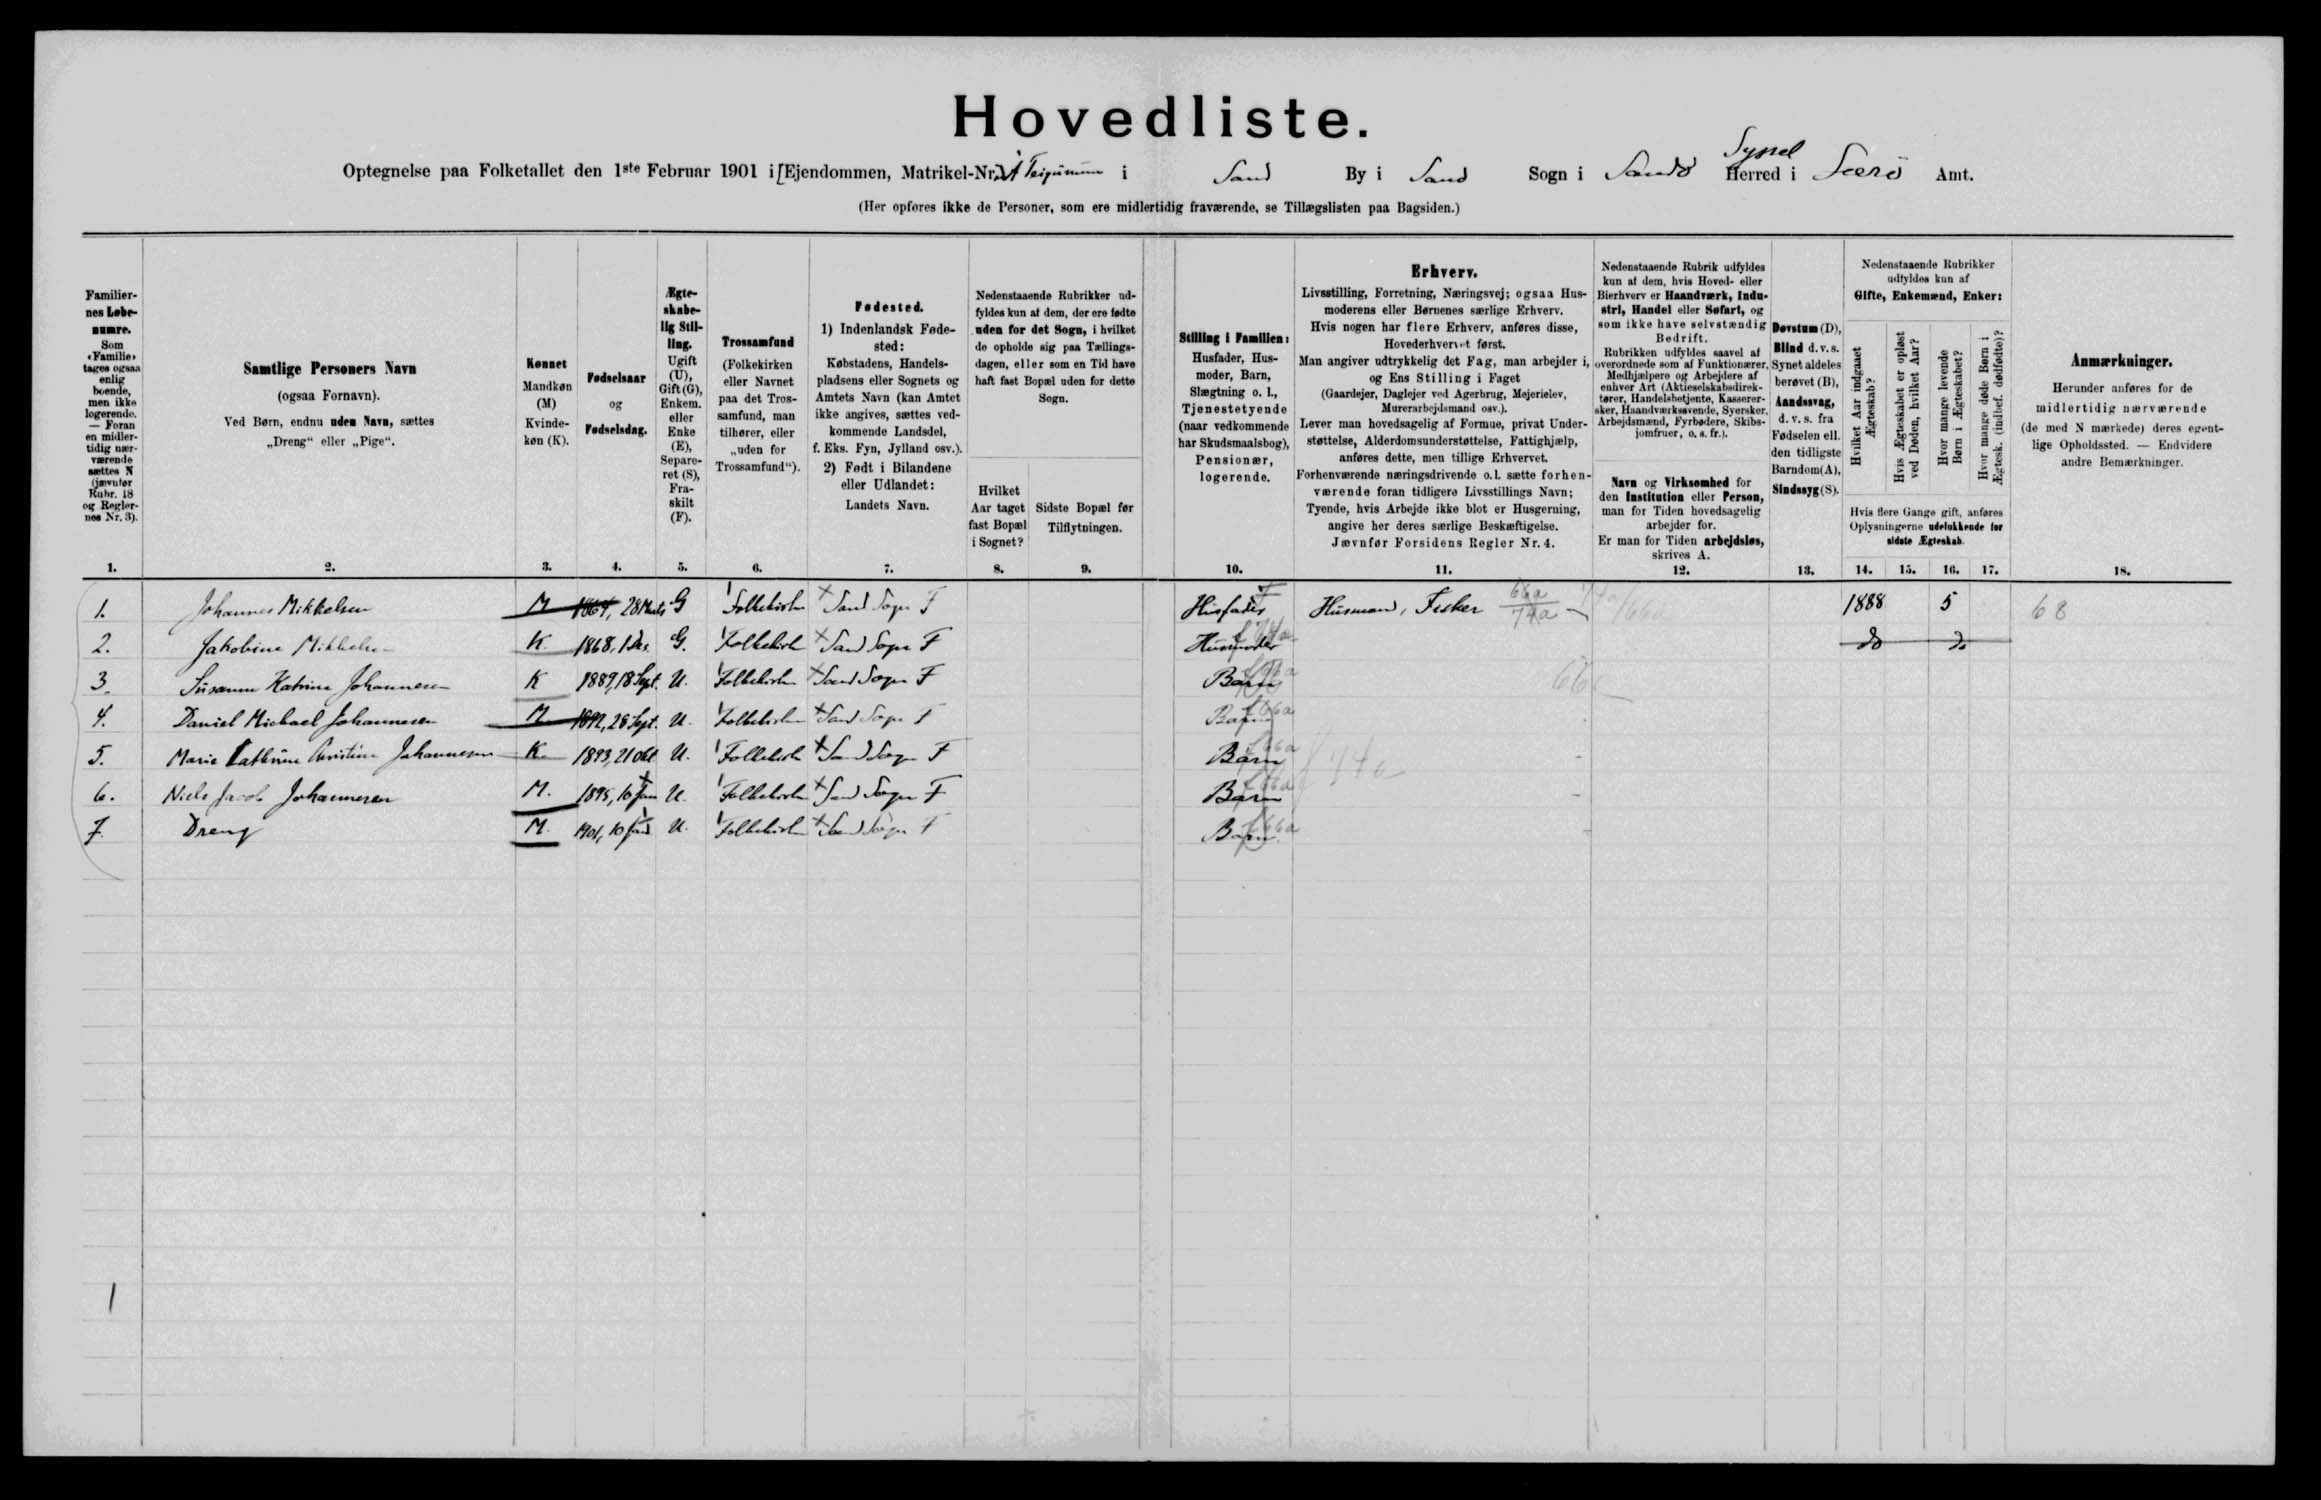 Hovedliste.
Optegnelse paa Folketallet den 1ste Februar 1901 i [Ejendommen, Matrikel-Nr.] Á Teigunum i Sand By i Sand Sogn i Sandø Syssel Herred i Færø Amt.
(Her opføres ikke de Personer, som ere midlertidig fraværende, se Tillægslisten paa Bagsiden.)
Familier-
nes Løbe-
numre.
Som
«Familie»
tages ogsaa
enlig
boende,
men ikke
logerende.
— Foran
en midler-
tidig nær-
værende
sættes N
(jævnfør
Rubr. 18
og Regler-
nes Nr. 3).
1.
Samtlige Personers Navn
(ogsaa Fornavn).
Ved Børn, endnu uden Navn, sættes
„Dreng“ eller „Pige“.
2.
Kønnet
Mandkøn
(M)
Kvinde-
køn (K).
3.
Fødselsaar
og
Fødselsdag.
4.
Ægte-
skabe-
lig Stil-
ling.
Ugift
(U),
Gift (G),
Enkem.
eller
Enke
(E),
Separe-
ret (S),
Fra-
skilt
(F).
5.
Trossamfund
(Folkekirken
eller Navnet
paa det Tros-
samfund, man
tilhører, eller
„uden for
Trossamfund“).
6.
Fødested.
1) Indenlandsk Føde-
sted:
Købstadens, Handels-
pladsens eller Sognets og
Amtets Navn (kan Amtet
ikke angives, sættes ved-
kommende Landsdel,
f. Eks. Fyn, Jylland osv.).
2) Født i Bilandene
eller Udlandet:
Landets Navn.
7.
Nedenstaaende Rubrikker ud-
fyldes kun af dem, der ere fødte
uden for det Sogn, i hvilket
de opholde sig paa Tællings-
dagen, eller som en Tid have
haft fast Bopæl uden for dette
Sogn.
Hvilket
Aar taget
fast Bopæl
i Sognet?
8.
Sidste Bopæl før
Tilflytningen.
9.
Stilling i Familien:
Husfader, Hus-
moder, Barn,
Slægtning o. l.,
Tjenestetyende
(naar vedkommende
har Skudsmaalsbog),
Pensionær,
logerende.
10.
Erhverv.
Livsstilling, Forretning, Næringsvej; ogsaa Hus-
moderens eller Børnenes særlige Erhverv.
Hvis nogen har flere Erhverv, anføres disse,
Hovederhvervet først.
Man angiver udtrykkelig det Fag, man arbejder i,
og Ens Stilling i Faget
(Gaardejer, Daglejer ved Agerbrug, Mejerielev,
Murerarbejdsmand osv.).
Lever man hovedsagelig af Formue, privat Under-
støttelse, Alderdomsunderstøttelse, Fattighjælp,
anføres dette, men tillige Erhvervet.
Forhenværende næringsdrivende o.l. sætte forhen-
værende foran tidligere Livsstillings Navn;
Tyende, hvis Arbejde ikke blot er Husgerning,
angive her deres særlige Beskæftigelse.
Jævnfør Forsidens Regler Nr. 4.
11.
Nedenstaaende Rubrik udfyldes
kun af dem, hvis Hoved- eller
Bierhverv er Haandværk, Indu-
stri, Handel eller Søfart, og
som ikke have selvstændig
Bedrift.
Rubrikken udfyldes saavel af
overordnede som af Funktionærer,
Medhjælpere og Arbejdere af
enhver Art (Aktieselskabsdirek-
tører, Handelsbetjente, Kasserer-
sker, Haandværkssvende, Syersker,
Arbejdsmænd, Fyrbødere, Skibs-
jomfruer, o. s. fr.).
Navn og Virksomhed for
den Institution eller Person,
man for Tiden hovedsagelig
arbejder for.
Er man for Tiden arbejdsløs,
skrives A.
12.
Døvstum (D),
Blind d. v. s.
Synet aldeles
berøvet (B),
Aandssvag,
d. v. s. fra
Fødselen ell.
den tidligste
Barndom (A),
Sindssyg (S).
13.
Nedenstaaende Rubrikker
udfyldes kun af
Gifte, Enkemænd, Enker:
Hvilket Aar indgaaet
Ægteskab?
Hvis Ægteskabet er opløst
ved Døden, hvilket Aar?
Hvor mange levende
Børn i Ægteskabet?
Hvor mange døde Børn i
Ægtesk. (indbef. dødfødte)?
Hvis flere Gange gift, anføres
Oplysningerne udelukkende for
sidste Ægteskab.
14. 15. 16. 17.
Anmærkninger.
Herunder anføres for de
midlertidig nærværende
(de med N mærkede) deres egent-
lige Opholdssted. — Endvidere
andre Bemærkninger.
18.
1. Johannes Mikkelsen M 1864, 28 Marts G Folkekirken Sand Sogn F Husfader Husmand, Fisker 66a 74a 1888 5 68
2. Jakobine Mikkelsen K. 1868, 1 Dec. G. Folkekirken Sand Sogn F Husmoder do do
3. Susanne Katrine Johannesen K 1889, 18 Sept. U. Folkekirken Sand Sogn F Barn
4. Daniel Michael Johannesen M 1892, 28 Sept. U. Folkekirken Sand Sogn F Barn
5. Marie Cathrine Christine Johannesen K 1893, 21 Okt U. Folkekirken Sand Sogn F Barn 74a
6. Niels Jacob Johannesen M. 1895, 16 Jan U. Folkekirken Sand Sogn F Barn
7. Dreng M. 1901, 10 Jan U. Folkekirken Sand Sogn F Barn.
1